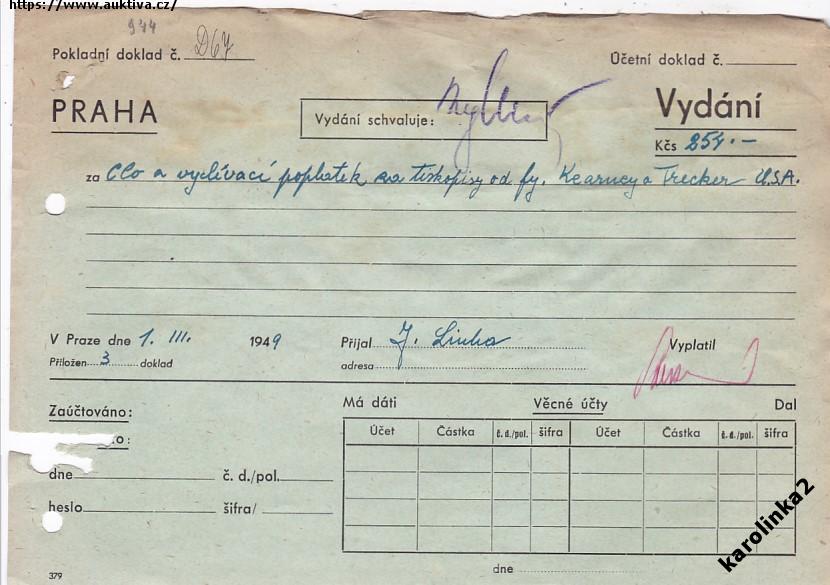 https://www.auktiva.cz/
944
Pokladní doklad č. D67
Účetní doklad č.
PRAHA
Vydání schvaluje:
Vydání
Kčs 254.-
za Clo a vyclívací poplatek za tiskopisy od fy. Kearney a Trecker U.S.A.
V Praze dne 1. III. 1949
Přijal J. Linha
Vyplatil
Přiložen 3 doklad
adresa
Zaúčtováno:
Má dáti
Věcné účty
Dal
Účet
Částka
č. d./pol.
šifra
Účet
Částka
č. d./pol.
šifra
o:
dne
č. d./pol.
heslo
šifra/
dne
379
karolinka2